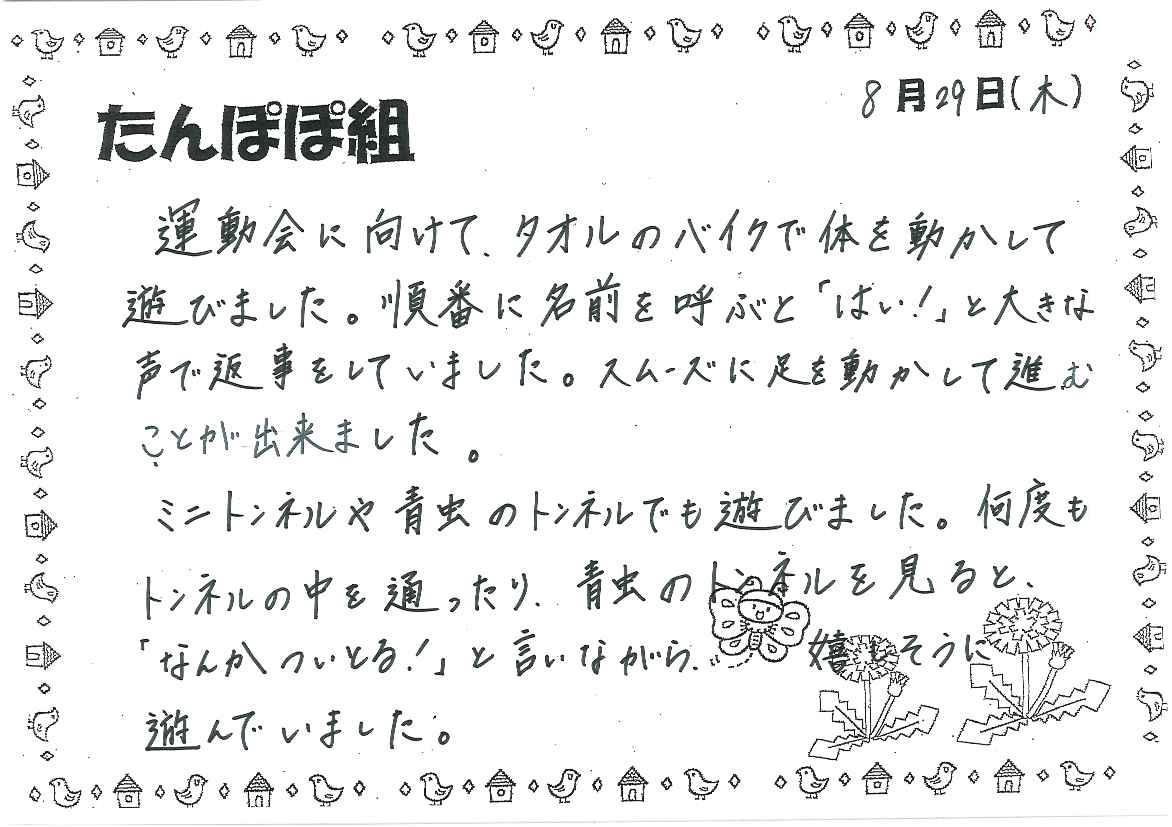 8月29日(木)
たんぽぽ組
運動会に向けて、タオルのバイクで体を動かして
遊びました。順番に名前を呼ぶと「はい!」と大きな
声で返事をしていました。スムーズに足を動かして進む
ことが出来ました。
ミニトンネルや青虫のトンネルでも遊びました。何度も
トンネルの中を通ったり、青虫のトンネルを見ると、
「なんかついとる!」と言いながら、嬉しそうに
遊んでいました。